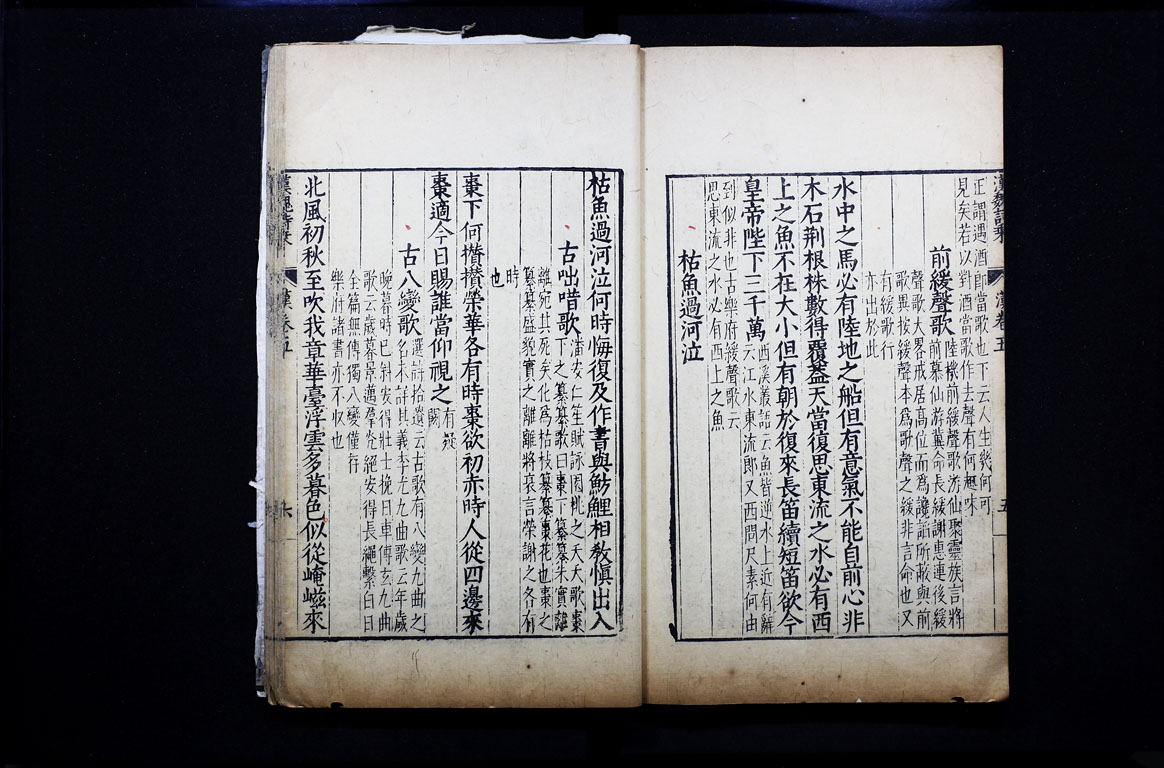 漢魏詩乘
漢卷五
五
正謂遇酒卽當歌也下云人生幾何可
見矣若以對酒當歌作去聲有何趣味
前緩聲歌
陸機前緩聲歌游仙聚靈族言將
前慕仙游冀命長緩謝惠連後緩
聲歌大畧戒居高位而爲讒謟所蔽與前
歌異按緩聲本爲歌聲之緩非言命也又
有緩歌行
亦出於此
水中之馬必有陸地之船但有意氣不能自前心非
木石荆根株數得覆蓋天當復思東流之水必有西
上之魚不在大小但有朝於復來長笛續短笛欲今
皇帝陛下三千萬
西溪叢語云魚皆逆水上近有辭
云江水東流郎又西問尺素何由
到似非也古樂府緩聲歌云
思東流之水必有西上之魚
枯魚過河泣
枯魚過河泣何時悔復及作書與魴鯉相教愼出入
古咄唶歌
潘安仁笙賦詠園桃之夭夭歌棗
下之纂纂歌曰棗下纂纂朱實離
離宛其死矣化爲枯枝纂纂棗花也棗之
纂纂盛貌實之離離將衰言榮謝之各有
時
也
棗下何攢攢榮華各有時棗欲初赤時人從四邊來
棗適今日賜誰當仰視之
有疑
闕
古八變歌
選詩拾遺云古歌有八變九曲之
名未詳其義李尤九曲歌云年歲
晚暮時已斜安得壯士挽日車傳玄九曲
歌云歲暮景邁羣光絕安得長繩繫白日
全篇無傳獨八變僅存
樂府諸書亦不收也
北風初秋至吹我章華臺浮雲多暮色似從崦嵫來
漢魏詩乘
漢卷五
六